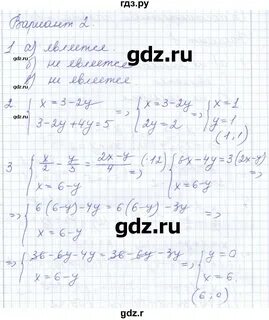 гдз.ру
Вариант 2.
gdz.ru
1 а) является.
б) не является
в) не является
gdz.ru
2 { x = 3-2y
3-2y+4y=5 => { x=3-2y
2y = 2 => { x=1
y=1
(1;1)
3 { x/2 - y/3 = (2x-y)/4 | (·12)
x = 6-y
{ 6x-4y=3(2x-y)
x=6-y
=> { 6(6-y)-4y = 6(6-y)-3y
x=6-y
=> { 36-6y-4y = 36-6y-3y
x=6-y => { y=0
x=6
(6;0)
gdz.ru
gdz.ru